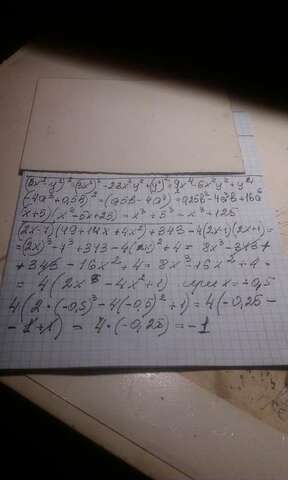 (3x²-y²)²=(3x²)²-23x²y²+(y²)²=9x⁴-6x²y²+y⁴
(-4a³+0,5b)²=(0,5b-4a³)=0,25b²-4a³b+16a⁶
x+5)(x²-5x+25)=x³+5³=x³+125
(2x-7)(49+14x+4x²)+343-4(2x-1)(2x+1)=
=(2x)³-7³+343-4(2x)²+4=8x³-343+
+343-16x²+4=8x³-16x²+4=
=4(2x³-4x²+1) при x=-0,5
4(2·(-0,5)³-4(-0,5)²+1)=4(-0,25-
-1+1)=4·(-0,25)=-1